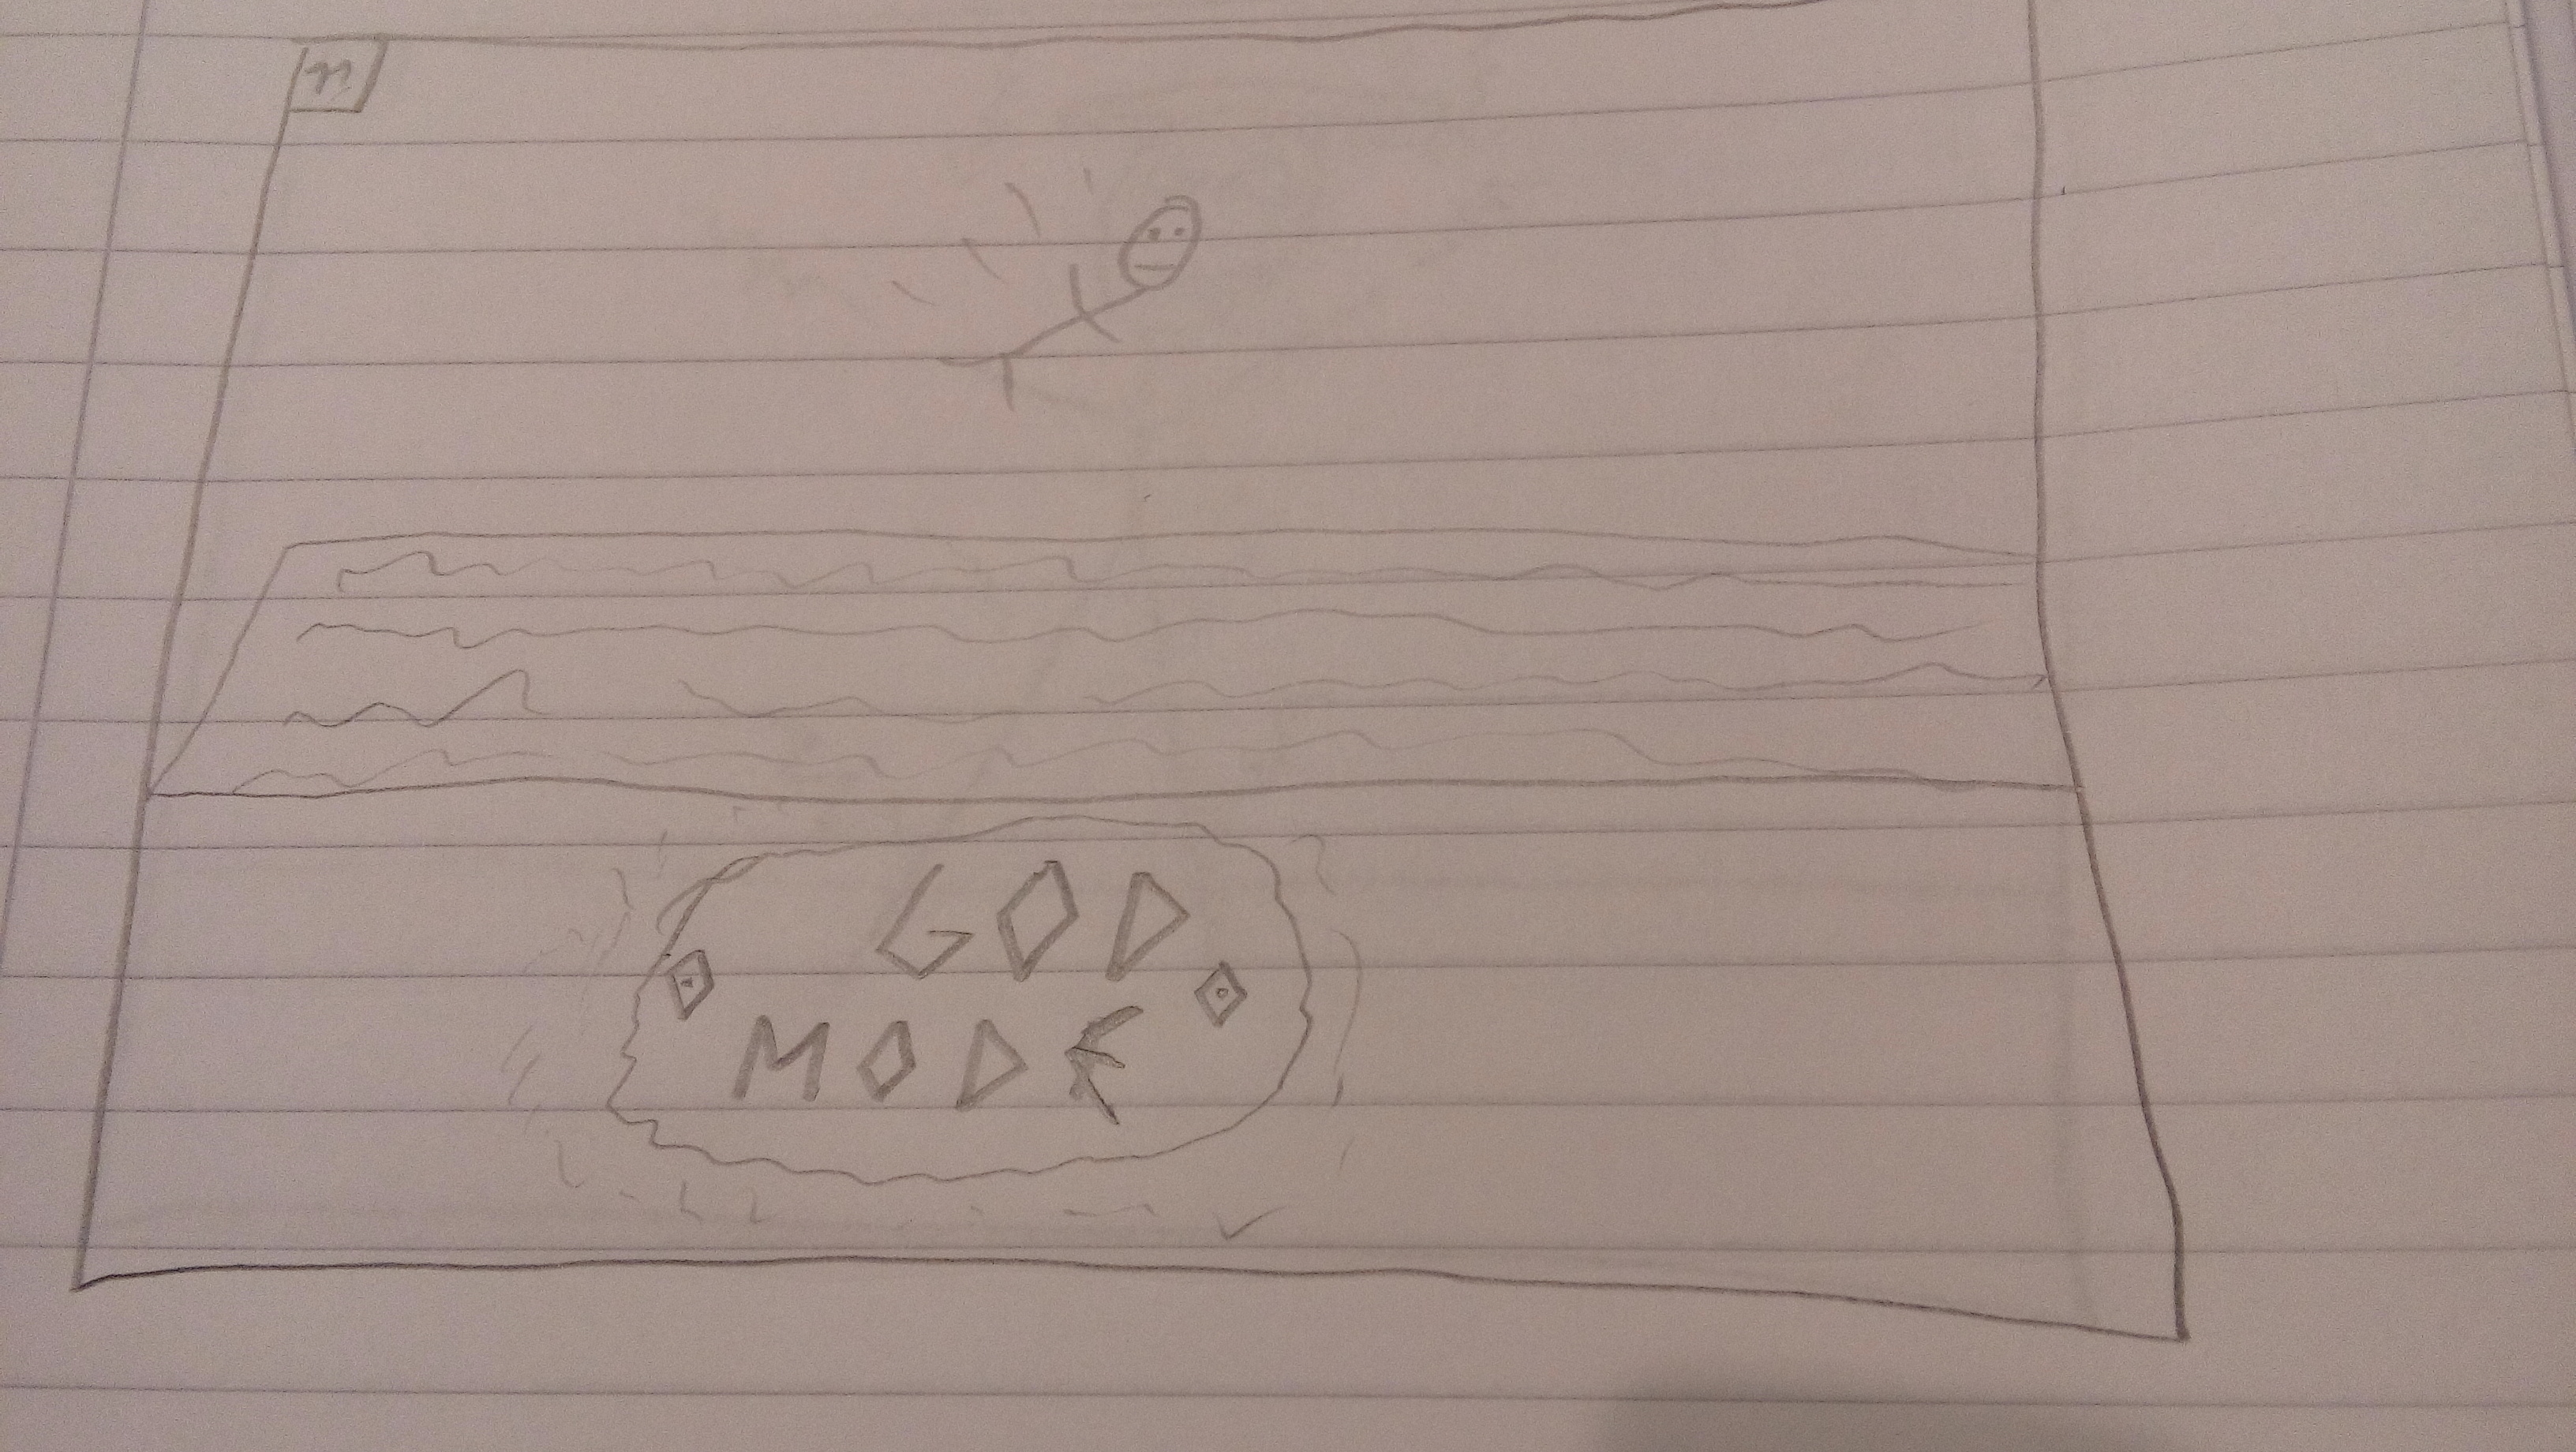 GOD
MODE